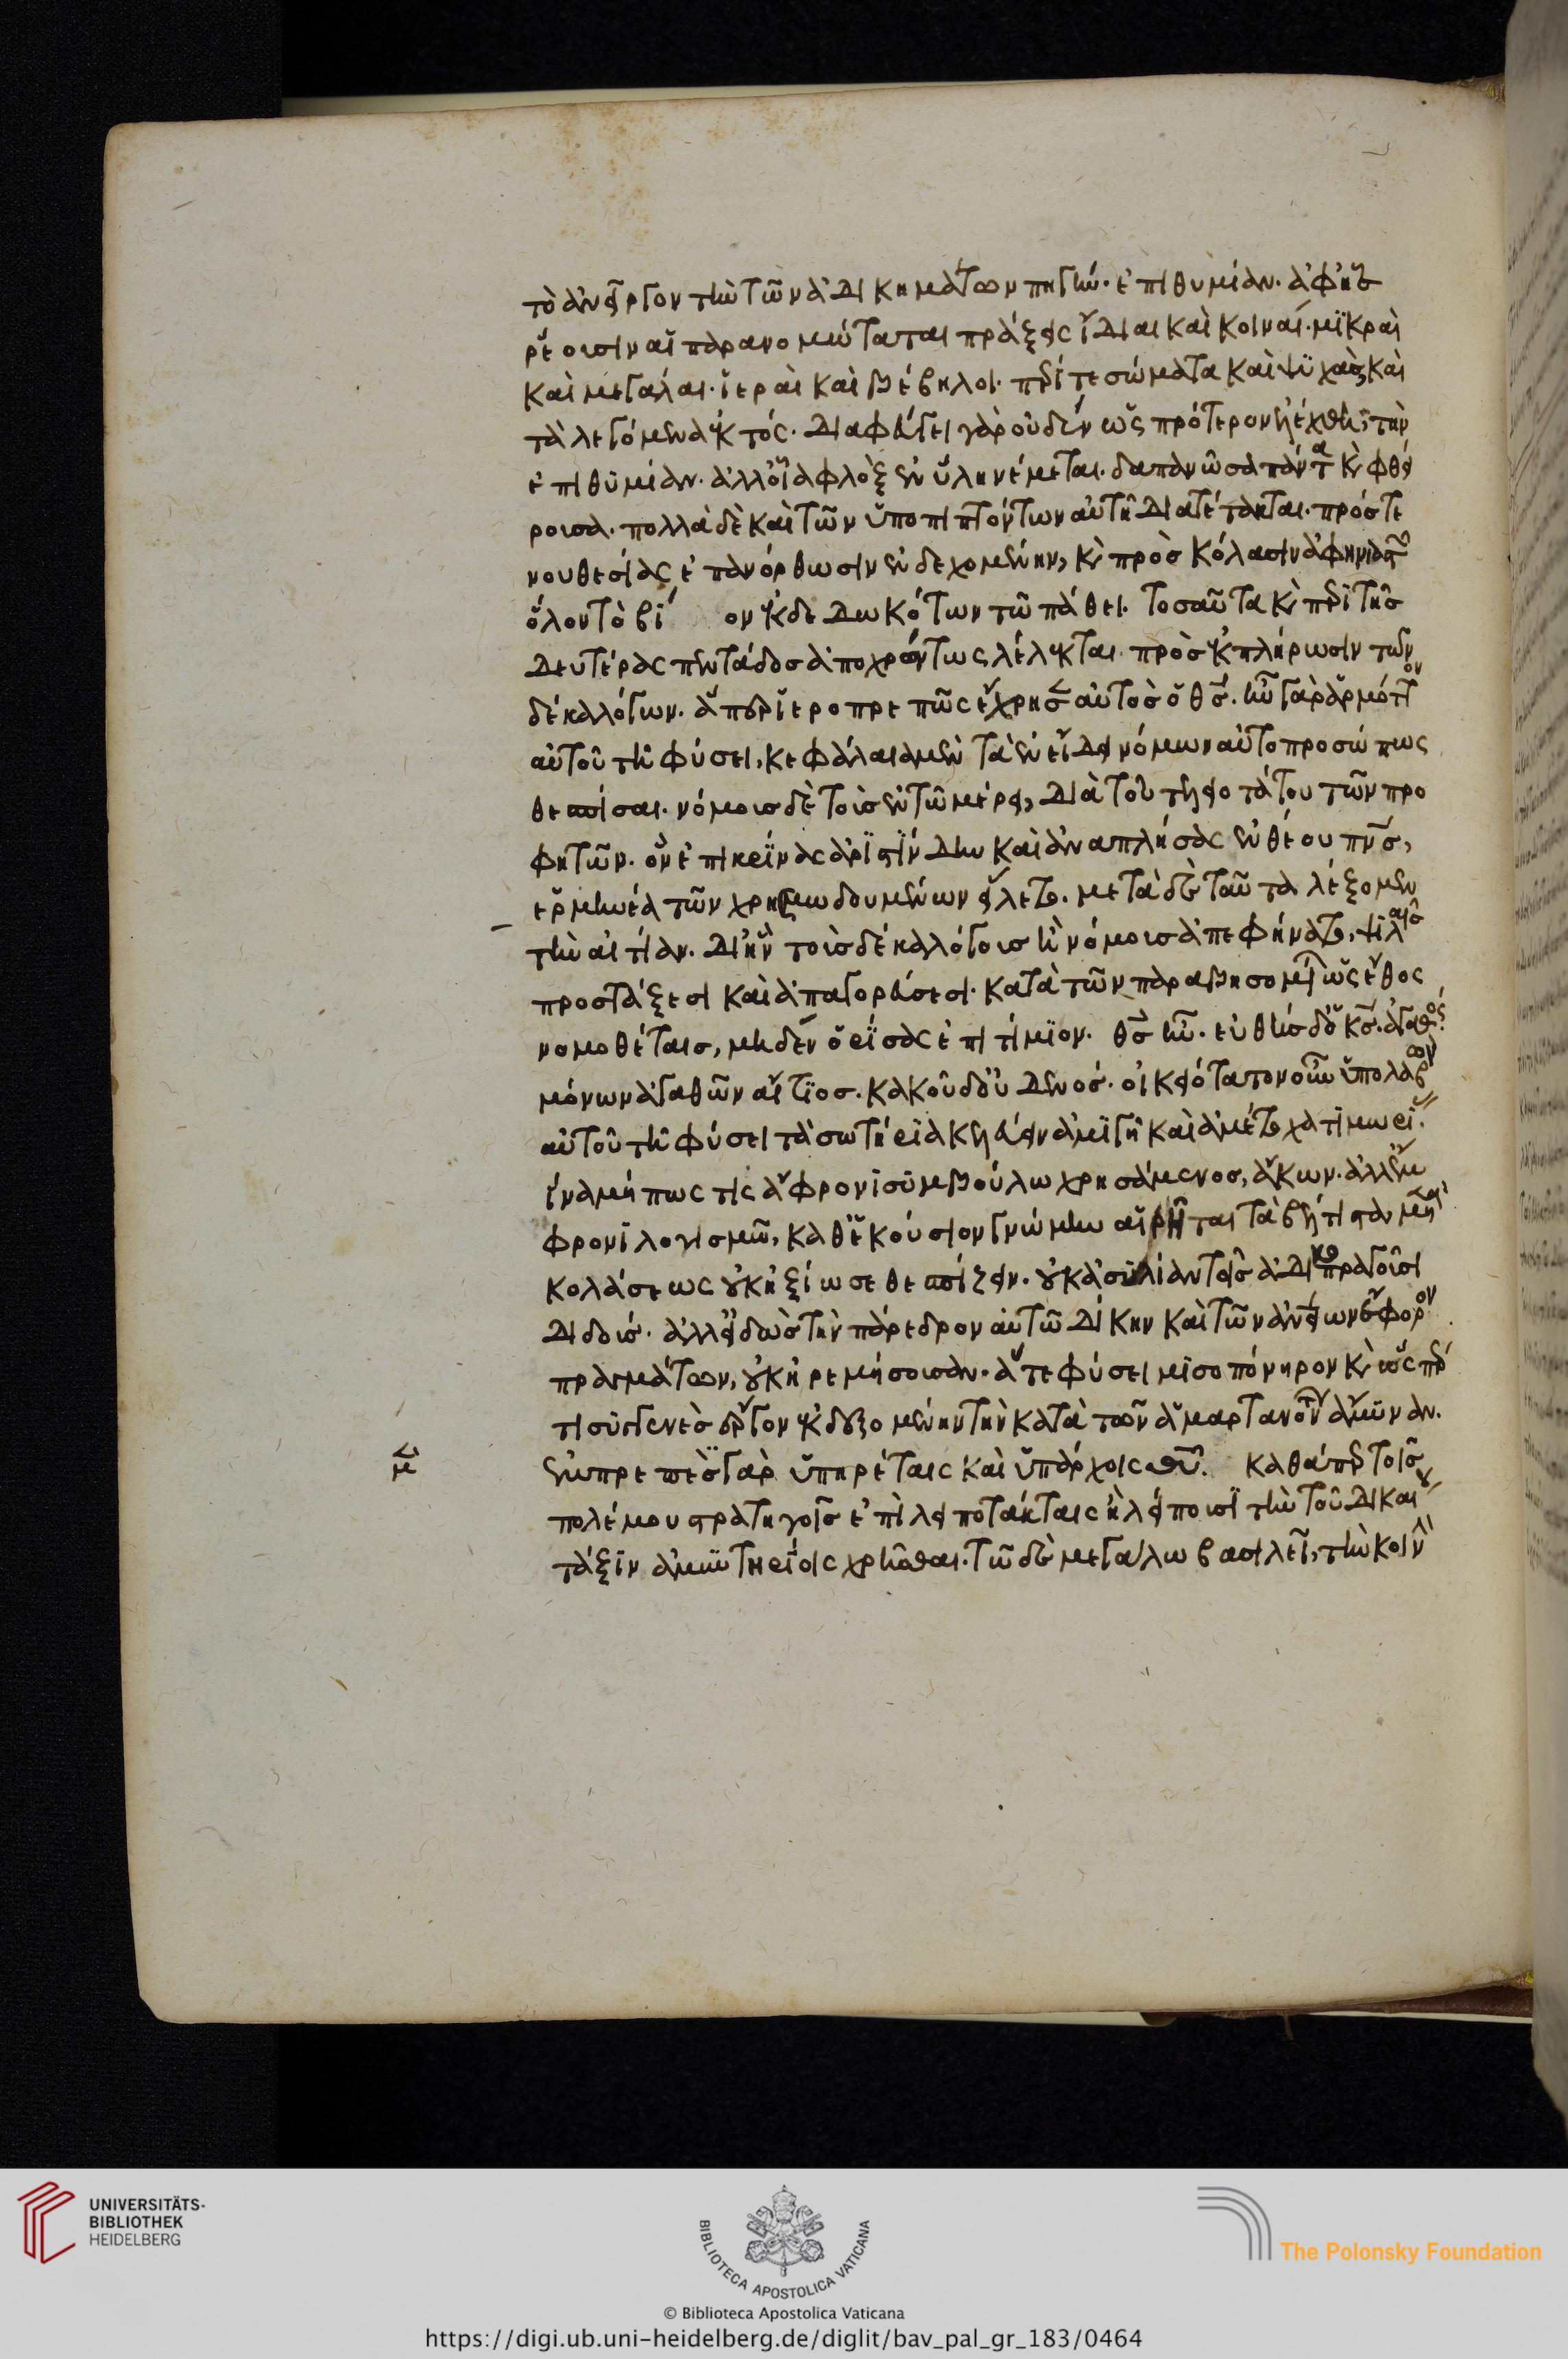 τὸ ἀνεῖργον τὴν τῶν ἀδικημάτων πηγήν· ἐπιθυμίαν· ἀφ' ἧς
ῥέουσιν αἱ παρανομώταται πράξεις ἴδιαι καὶ κοιναί· μικραὶ
καὶ μεγάλαι· ἱεραὶ καὶ βέβηλοι· περί τε σώματα καὶ ψυχὰς καὶ
τὰ λεγόμενα ἐκτός· διαφεύγει γὰρ οὐδὲν ὡς πρότερον ἐλέχθη, τὴν
ἐπιθυμίαν· ἀλλ' οἷα φλὸξ ἐν ὕλη νέμεται· δαπανῶσα πάντα καὶ φθεί
ρουσα· πολλὰ δὲ καὶ τῶν ὑποπιπτόντων αὐτῆ διατέτακται· πρός τε
νουθεσίας ἐπανόρθωσιν ἐνδεχομένην, καὶ πρὸς κόλασιν ἀφηνιαστῶν
ὅλον τὸ βί ον ἐκδεδωκότων τῶ πάθει· τοσαῦτα καὶ περὶ τῆς
δευτέρας πεντάδος ἀποχρώντως λέλεκται· πρὸς ἐκπλήρωσιν τῶν
δέκα λογίων· ἅπερ ἱεροπρεπῶς ἔχρησεν αὐτὸς ὁ θς. ἦν γὰρ ἁρμόττον
αὐτοῦ τῆ φύσει, κεφάλαια μὲν τὰ ἐν εἴδει νόμων αὐτοπροσώπως
θεσπίσαι· νόμοις δὲ τοῖς ἐν τῶ μέρει, διὰ τοῦ τελειοτάτου τῶν προ
φητῶν· ὃν ἐπικρίνας ἀριστίνδην καὶ ἀναπλήσας ἐνθέου πνς,
ἑρμηνέα τῶν χρησμωδουμένων εἵλετο. μετὰ δὲ ταῦτα λέξομεν
τὴν αἰτίαν· δι' ἣν τοῖς δέκα λόγοις ἢ νόμοις ἀπεφήνατο, ψιλαῖς
προστάξεσι καὶ ἀπαγορεύσεσι· κατὰ τῶν παραβησομένων ὡς ἔθος
νομοθέταις, μηδὲν ὁρίσας ἐπιτίμιον. θς ἦν. εὐθὺς δὲ κς. ἀγαθός.
μόνων ἀγαθῶν αἴτιος. κακοῦ δ' οὐδενός. οἰκειότατον οὖν ὑπολαβὼν
αὐτοῦ τῆ φύσει τὰ σωτήρια κελεύειν ἀμιγῆ καὶ ἀμέτοχα τιμωρίας·
ἵνα μή πως τις ἄφρονι συμβούλω χρησάμενος, ἄκων· ἀλλ' ἔμ
φρονι λογισμῶ, καθ' ἑκούσιον γνώμην αἱρῆται τὰ βέλτιστα μετὰ
κολάσεως οὐκ ἠξίωσε θεσπίζειν· οὐκ ἀσυλίαν τοῖς ἀδικοπραγοῦσι
διδούς· ἀλλ' εἰδὼς τὴν πάρεδρον αὐτῶ δίκην καὶ τῶν ἀνθρωπείων ἔφορον
πραγμάτων, οὐκ ἠρεμήσουσαν· ἅτε φύσει μισοπόνηρον καὶ ὥσπερ
τι συγγενὲς ἔργον ἐκδεξομένην τὴν κατὰ τῶν ἁμαρτανόντων ἄμυναν.
ἐμπρεπὲς γὰρ ὑπηρέταις καὶ ὑπάρχοις θυ. καθάπερ τοῖς
πολέμου στρατηγοῖς ἐπὶ λειποτάκταις ἢ λείπουσι τὴν τοῦ δικαίου
τάξιν ἀμυντηρίοις χρῆσθαι· τῶ δὲ μεγάλω βασιλεῖ, τὴν κοινὴν
UNIVERSITÄTS-
BIBLIOTHEK
HEIDELBERG
BIBLIOTECA APOSTOLICA VATICANA
The Polonsky Foundation
© Biblioteca Apostolica Vaticana
https://digi.ub.uni-heidelberg.de/diglit/bav_pal_gr_183/0464